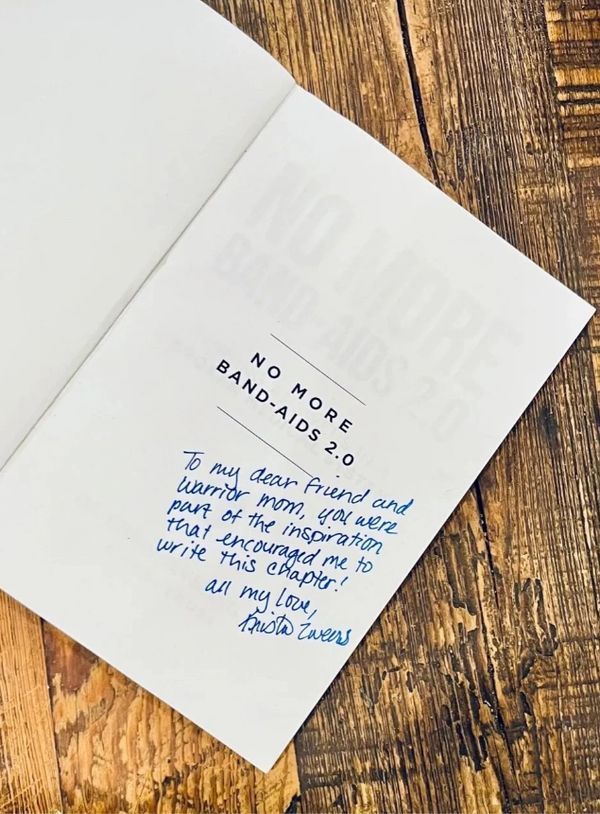 NO MORE
BAND-AIDS 2.0
NO MORE
BAND-AIDS 2.0
To my dear friend and
warrior mom, you were
part of the inspiration
that encouraged me to
write this chapter!
all my love,